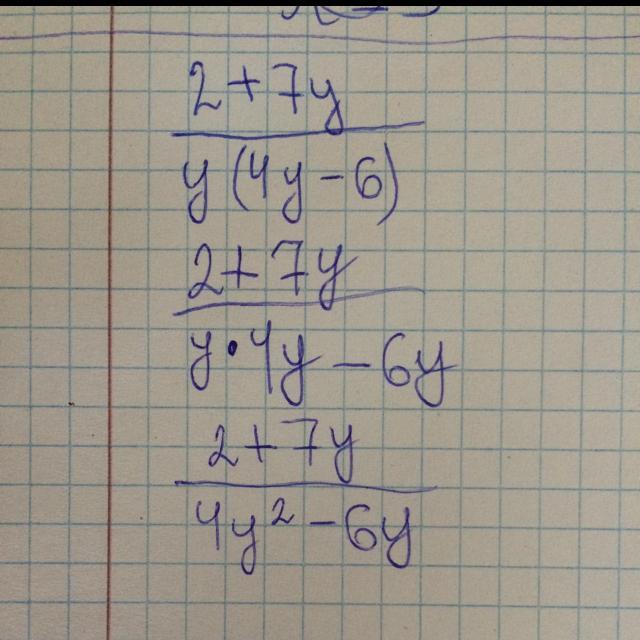 2 + 7y
y (4y - 6)
2 + 7y
y · 4y - 6y
2 + 7y
4y² - 6y